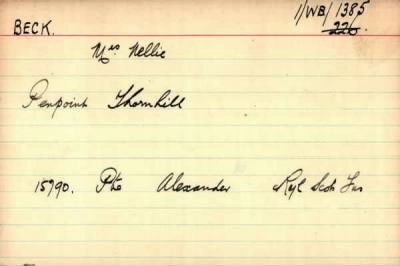 1/WB/1385
BECK.
226.
Mrs Nellie
Penpoint Thornhill
15790. Pte Alexander Ryl Scots Fus